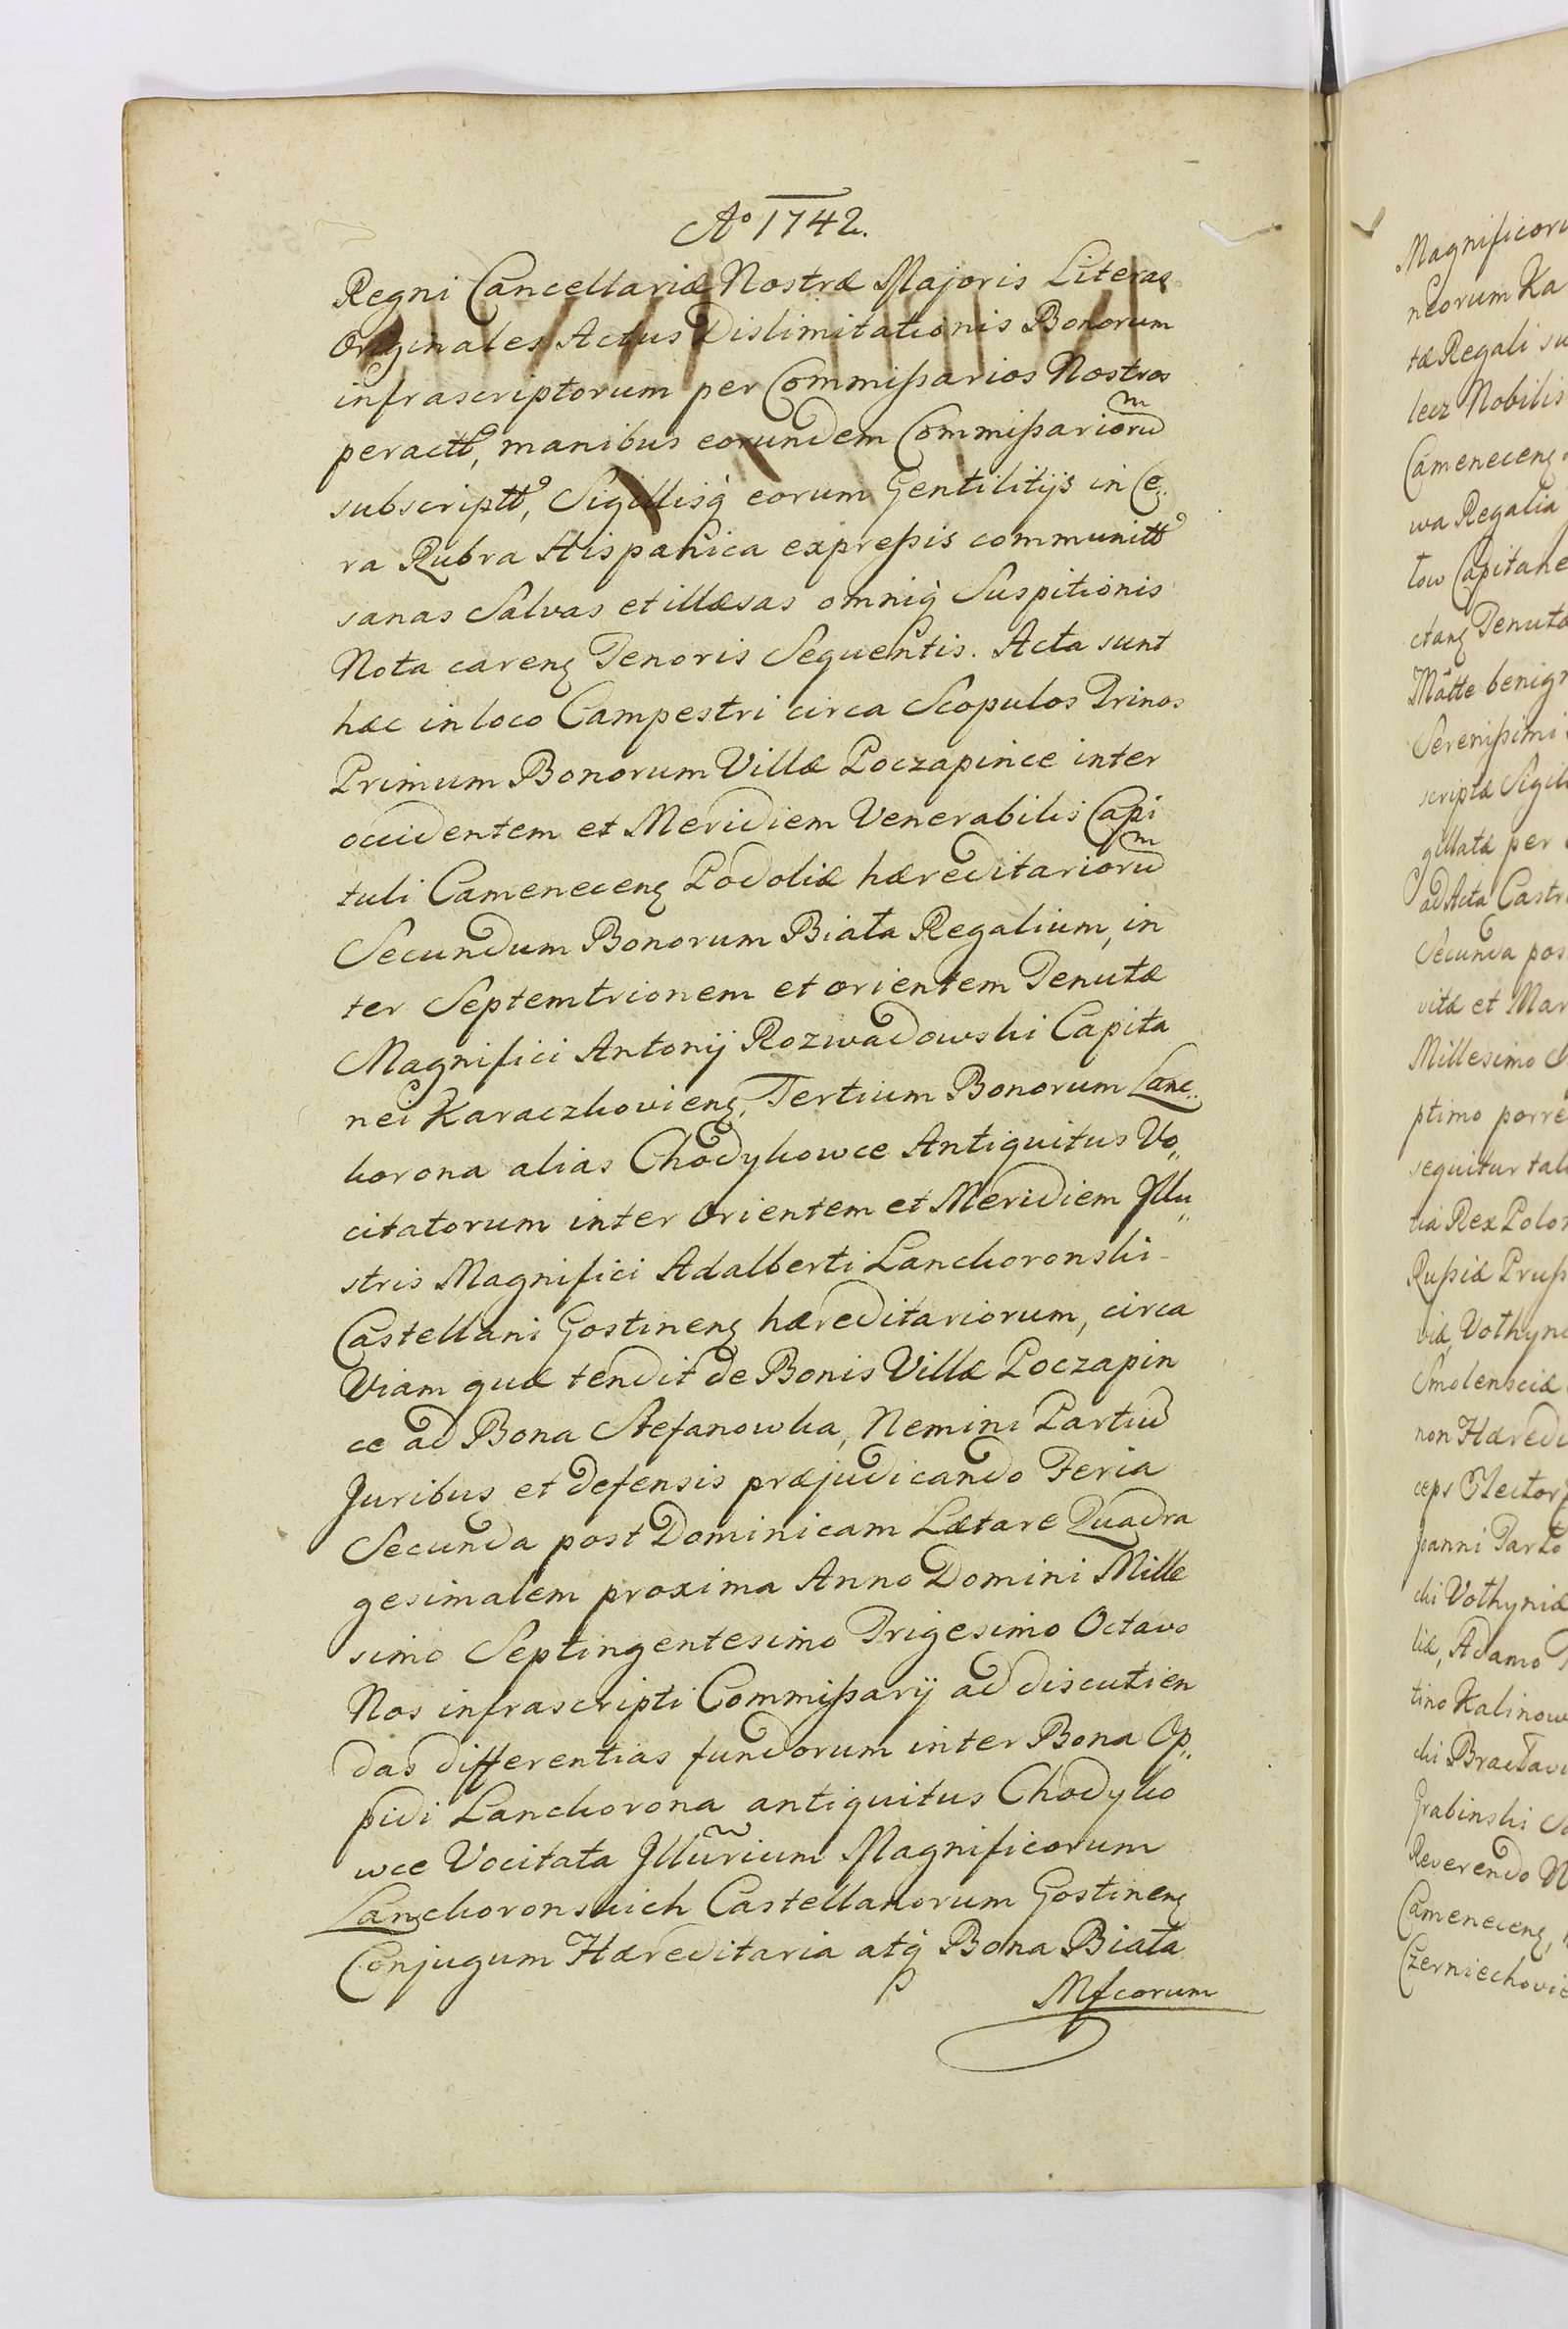 Aº 1742.
Regni Cancellariæ Nostræ Majoris Literas
Originales Actus Dislimitationis Bonorum
infrascriptorum per Commißarios Nostros
peractt, manibus eorundem Commißariorum
subscriptt, Sigillisq̀ eorum Gentilitijs in Ce„
ra Rubra Hispanica expreßis communitt
sanas Salvas et illæsas omniq̀ Suspitionis
Nota careng Tenoris Sequentis. Acta sunt
hæc in loco Campestri circa Scopulos Trinos
Primum Bonorum Villæ Poczapince inter
occidentem et Meridiem Venerabilis Capi
tuli Cameneceng Podoliæ hæreditariorum
Secundum Bonorum Biała Regalium, in
ter Septemtrionem et orientem Tenutæ
Magnifici Antonij Rozwadowski Capita
nei Karaczkovieng, Tertium Bonorum Lanc„
korona alias Chodykowce Antiquitus Vo„
citatorum inter Orientem et Meridiem Jllu„
stris Magnifici Adalberti Lanckoronski
Castellani Gostineng hæreditariorum, circa
Viam quæ tendit de Bonis Villæ Poczapin
ce ad Bona Stefanowka, Nemini Partiu
Juribus et defensis præjudicando Feria
Secunda post Dominicam Lætare Quadra
gesimalem proxima Anno Domini Mille
simo Septingentesimo Trigesimo Octavo
Nos infrascripti Commißarij ad discutien
das differentias fundorum inter Bona Op„
pidi Lanckorona antiquitus Chodyko
wce Vocitata Jllurium Magnificorum
Lanckoronskich Castellanorum Gostineng
Conjugum Hæreditaria atq̀ Bona Biała
Mfcorum
Magnificoru
neorum Ka
tæ Regali su
lecz Nobilis
Cameneceng
wa Regalia
tow Capitane
ctang Tenuta
Mâtte benig
Serenißimi
scriptæ Sigil
gillatæ per
ad Acta Castr
Secunda pos
vitæ et Mar
Millesimo
ptimo porre
sequitur tal
tia Rex Polo
Rußiæ Pruß
viæ, Vołhyn
Smolensciæ
non Hæredi
ceps Elector
Joanni Tarło
ski Vołhyniæ
liæ, Adamo
tino Kalinow
ski Bracłavi
Grabinski
Reverendo
Cameneceng,
Czerniechovie